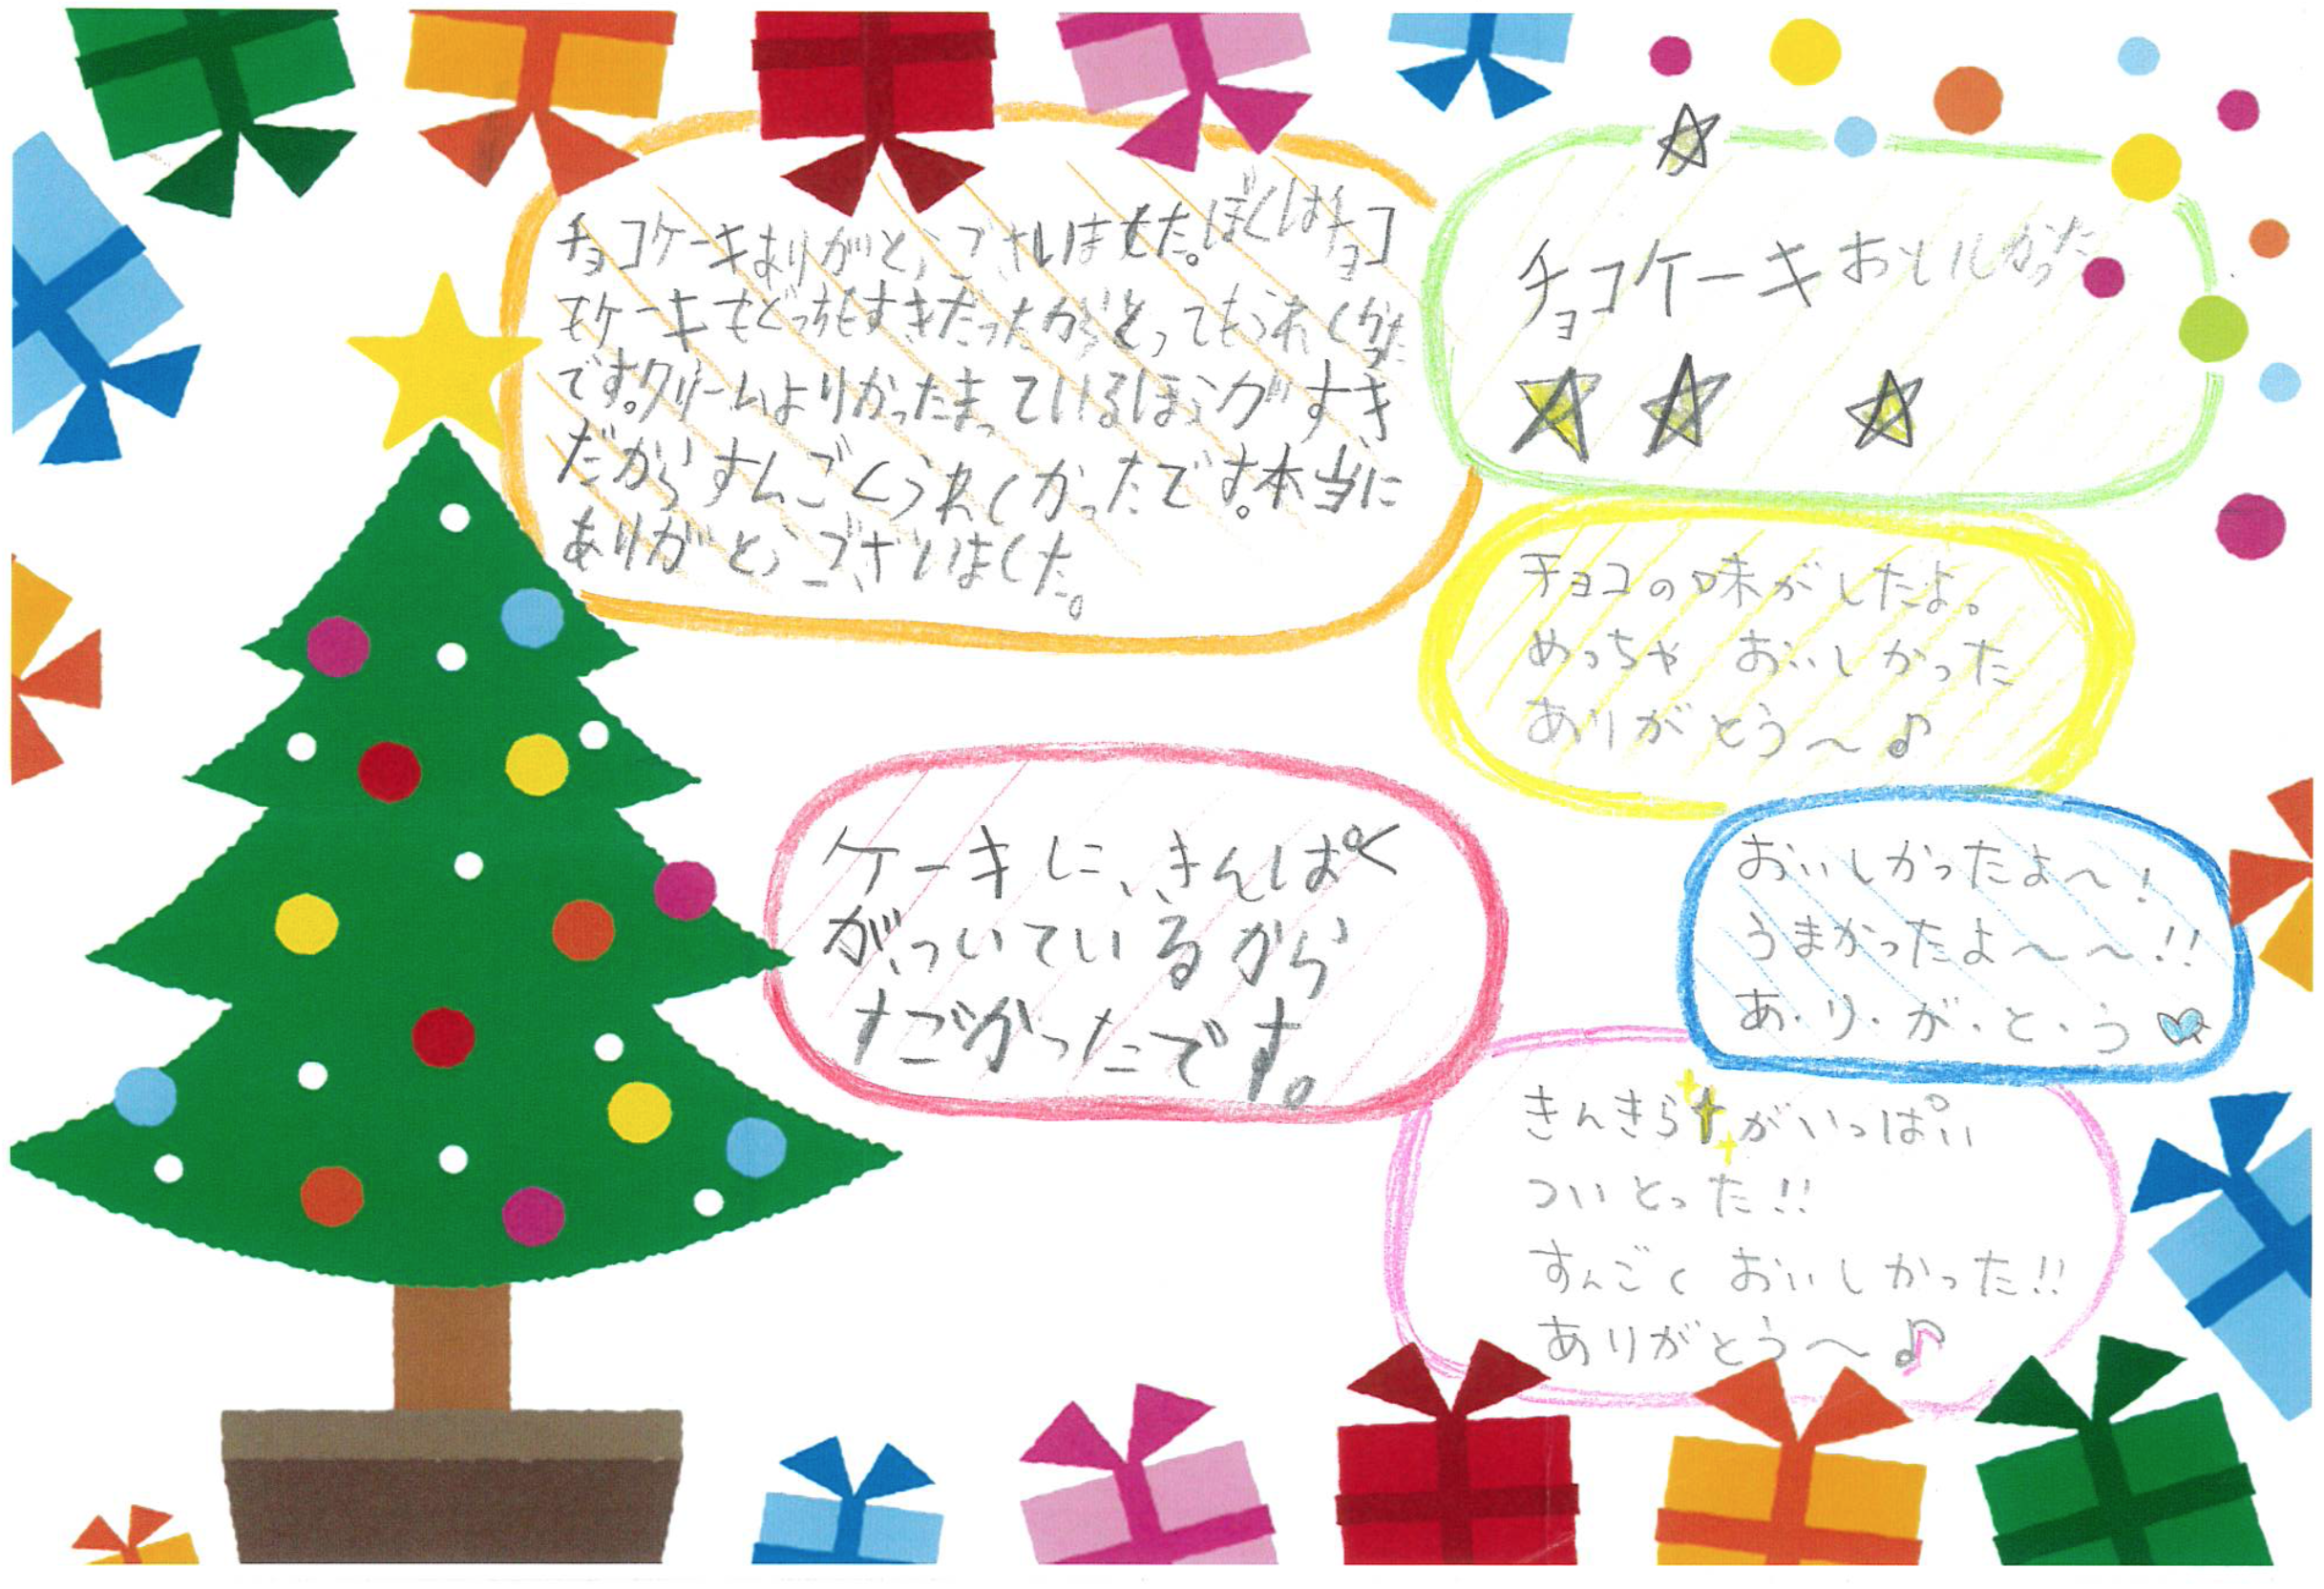 チョコケーキありがとうございました。ぼくはチョコ
もケーキもどっちもすきだったからとってもうれしかった
です。クリームよりかったまっているほうがすき
だからすんごくうれしくかったです。本当に
ありがとうございました。
チョコケーキおいしかった
チョコの味がしたよ。
めっちゃ おいしかった
ありがとう〜♪
ケーキに、きんぱく
がついているから
すごかったです。
おいしかったよ〜!
うまかったよ〜〜!!
あ・り・が・と・う
きんきらがいっぱい
ついとった!!
すんごく おいしかった!!
ありがとう〜♪